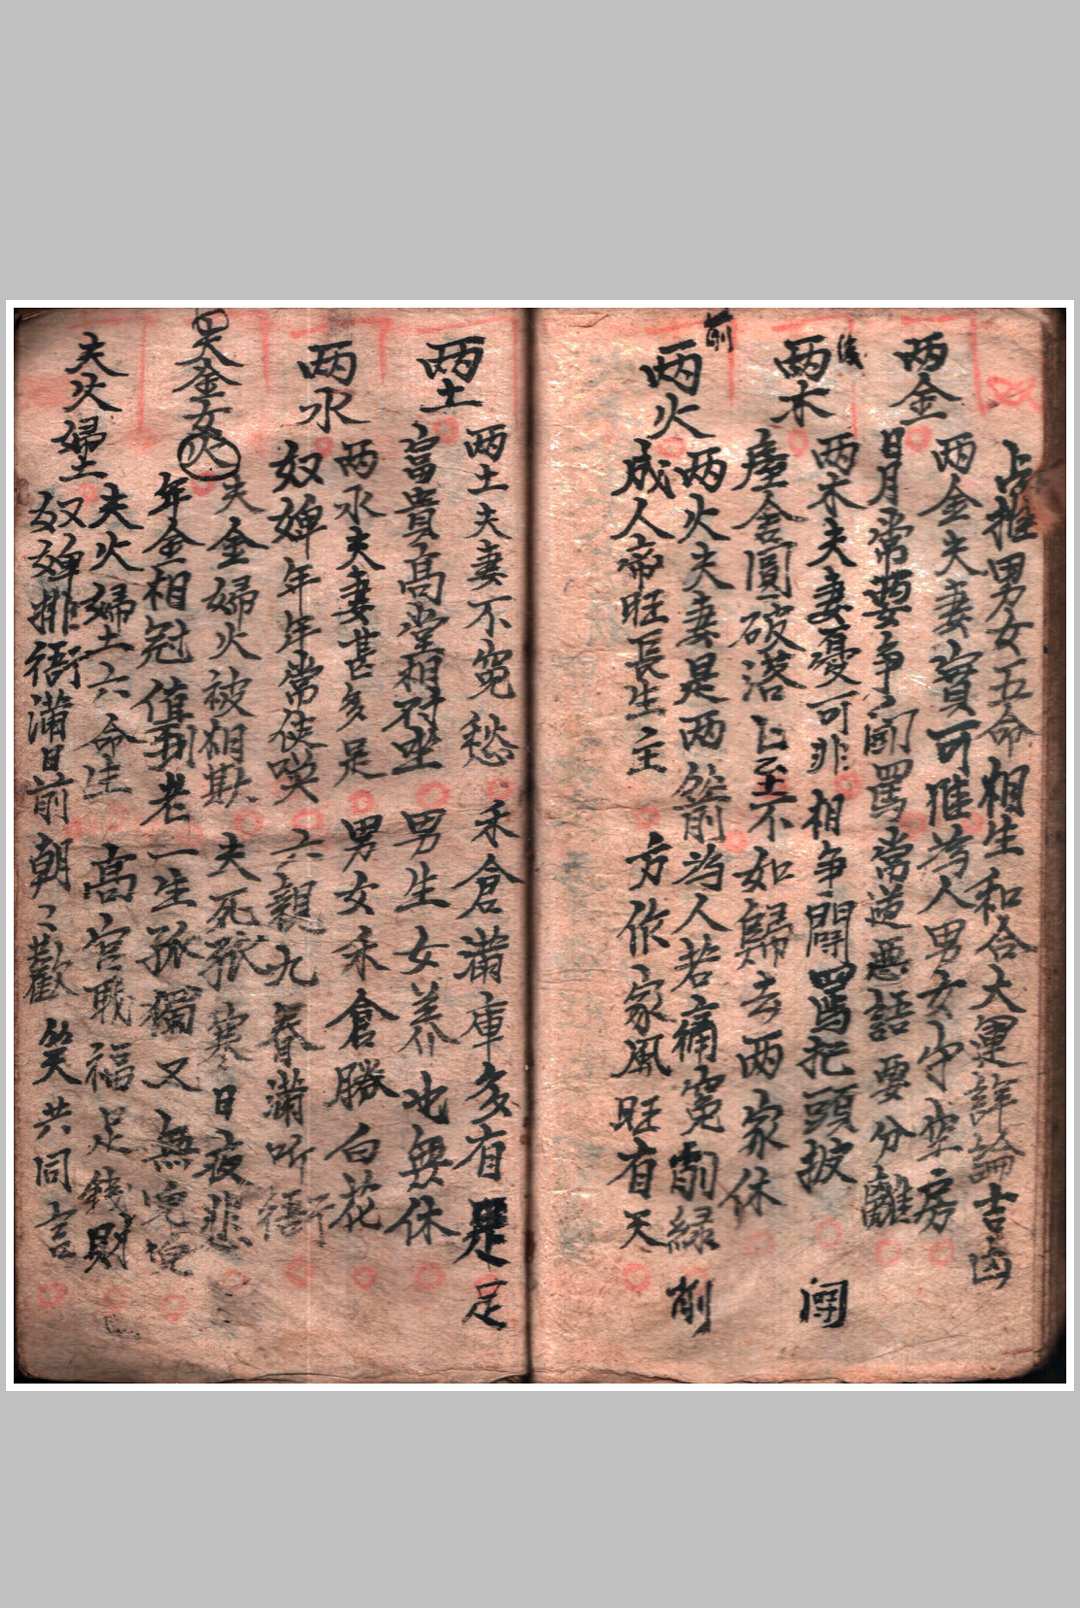 占推男女五命相生和合大運詳論吉凶
两金
两金夫妻實可惟為人男女守空房
日月常要争鬧罵常道惡語要分離
後
两木
两木夫妻憂可非相争鬧罵把頭披
屋舍圓破落上至不如歸去两家休
鬧
前
两火
两火夫妻是两然前为人若痛冤緣
成人帝旺長生主方作家風旺有天
削
两土
两土夫妻不冤愁禾倉滿庫多有足
富貴高堂相對坐男生女養也要休
两水
两水夫妻甚多足男女禾倉勝白花
奴婢年年常使喚六親九眷滿听衙
夫金女火
夫金婦火被相欺夫死孤寒日夜悲
年金相冠值到老一生孤獨又無兒
夫火婦土
夫火婦土六命生高官職福足錢財
奴婢排衙滿日前朝々歡笑共同言